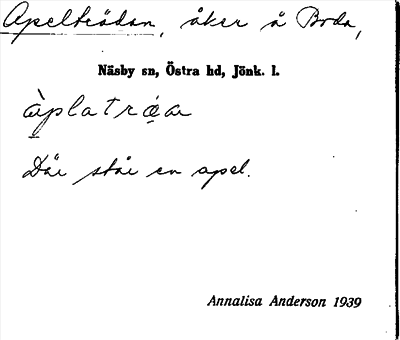 Apelträdan, åker å Boda,
Näsby sn, Östra hd, Jönk. l.
àplatráa
Där står en apel.
Annalisa Anderson 1939